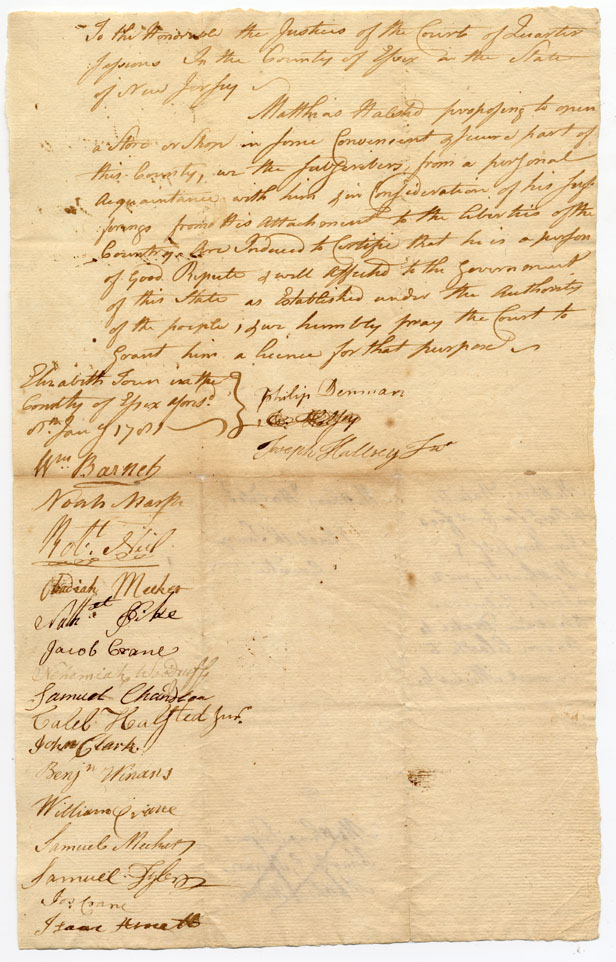 To the Honorable the Justices of the Court of Quarter
sessions In the County of Essex in the State
of New Jersey
Matthias Halsted proposing to open
a Store or Shop in some Convenient & secure part of
this County, we the subscribers, from a personal
Acquaintance with him & in Consideration of his suf-
ferings from His Attachment to the Liberties of the
Country Are Induced to Certifie that he is a person
of Good Repute & well affected to the Government
of this State as Established under the Authority
of the people, & we humbly pray the Court to
Grant him a licence for that purpose
Elizabeth Town in the
County of Essex
Jany 1781
Philip Denman
Joseph Halsey Jur
Wm Barnet
Noah Marsh
Robt Neil
Obadiah Meeker
Nathel Pike
Jacob Crane
Nehemiah Woodruff
Samuel Chandler
Caleb Halsted Junr
John Clark
Benjn Winans
William Crane
Samuel Meeker
Samuel Tyler
Jos Crane
Isaac Arnett